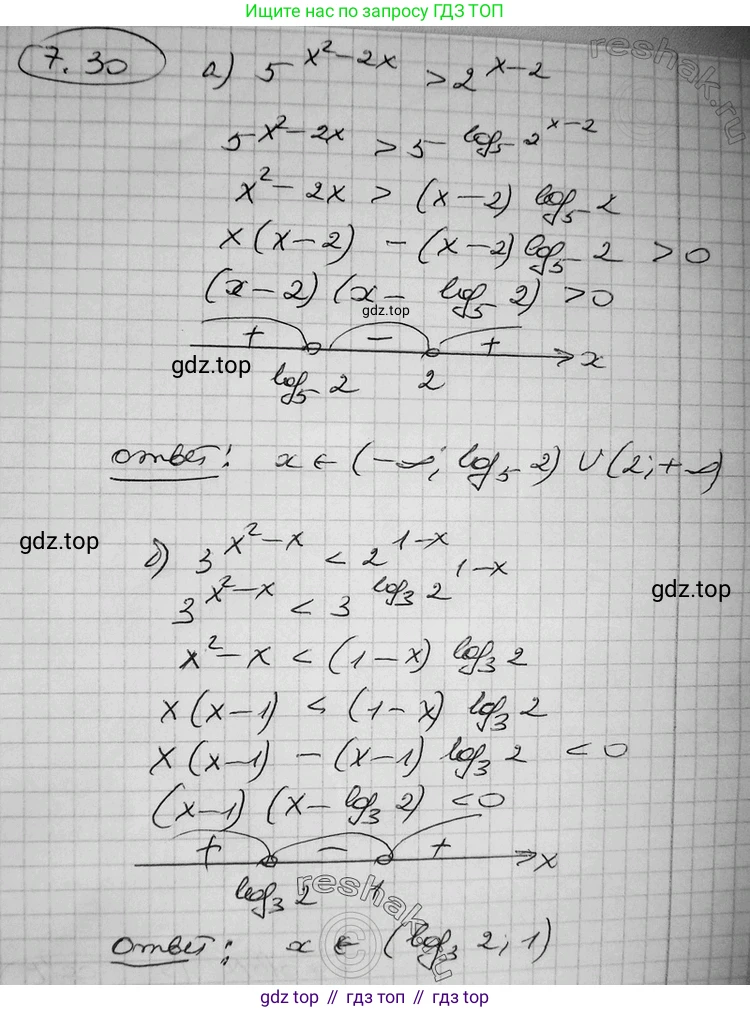 Ищите нас по запросу ГДЗ ТОП
reshak.ru
7.30 а) 5^{x²-2x} > 2^{x-2}
5^{x²-2x} > 5^{log₅ 2^{x-2}}
x² - 2x > (x-2) log₅ 2
x(x-2) - (x-2) log₅ 2 > 0
(x-2) (x - log₅ 2) > 0
gdz.top
+ - + x
gdz.top
log₅ 2 2
ответ: x ∈ (-∞; log₅ 2) ∪ (2; +∞)
gdz.top
б) 3^{x²-x} < 2^{1-x}
3^{x²-x} < 3^{log₃ 2^{1-x}}
gdz.top
x² - x < (1-x) log₃ 2
x(x-1) < (1-x) log₃ 2
x(x-1) - (x-1) log₃ 2 < 0
(x-1) (x - log₃ 2) < 0
+ - + x
log₃ 2 1
reshak.ru
ответ: x ∈ (log₃ 2; 1)
gdz.top // гдз топ // gdz top